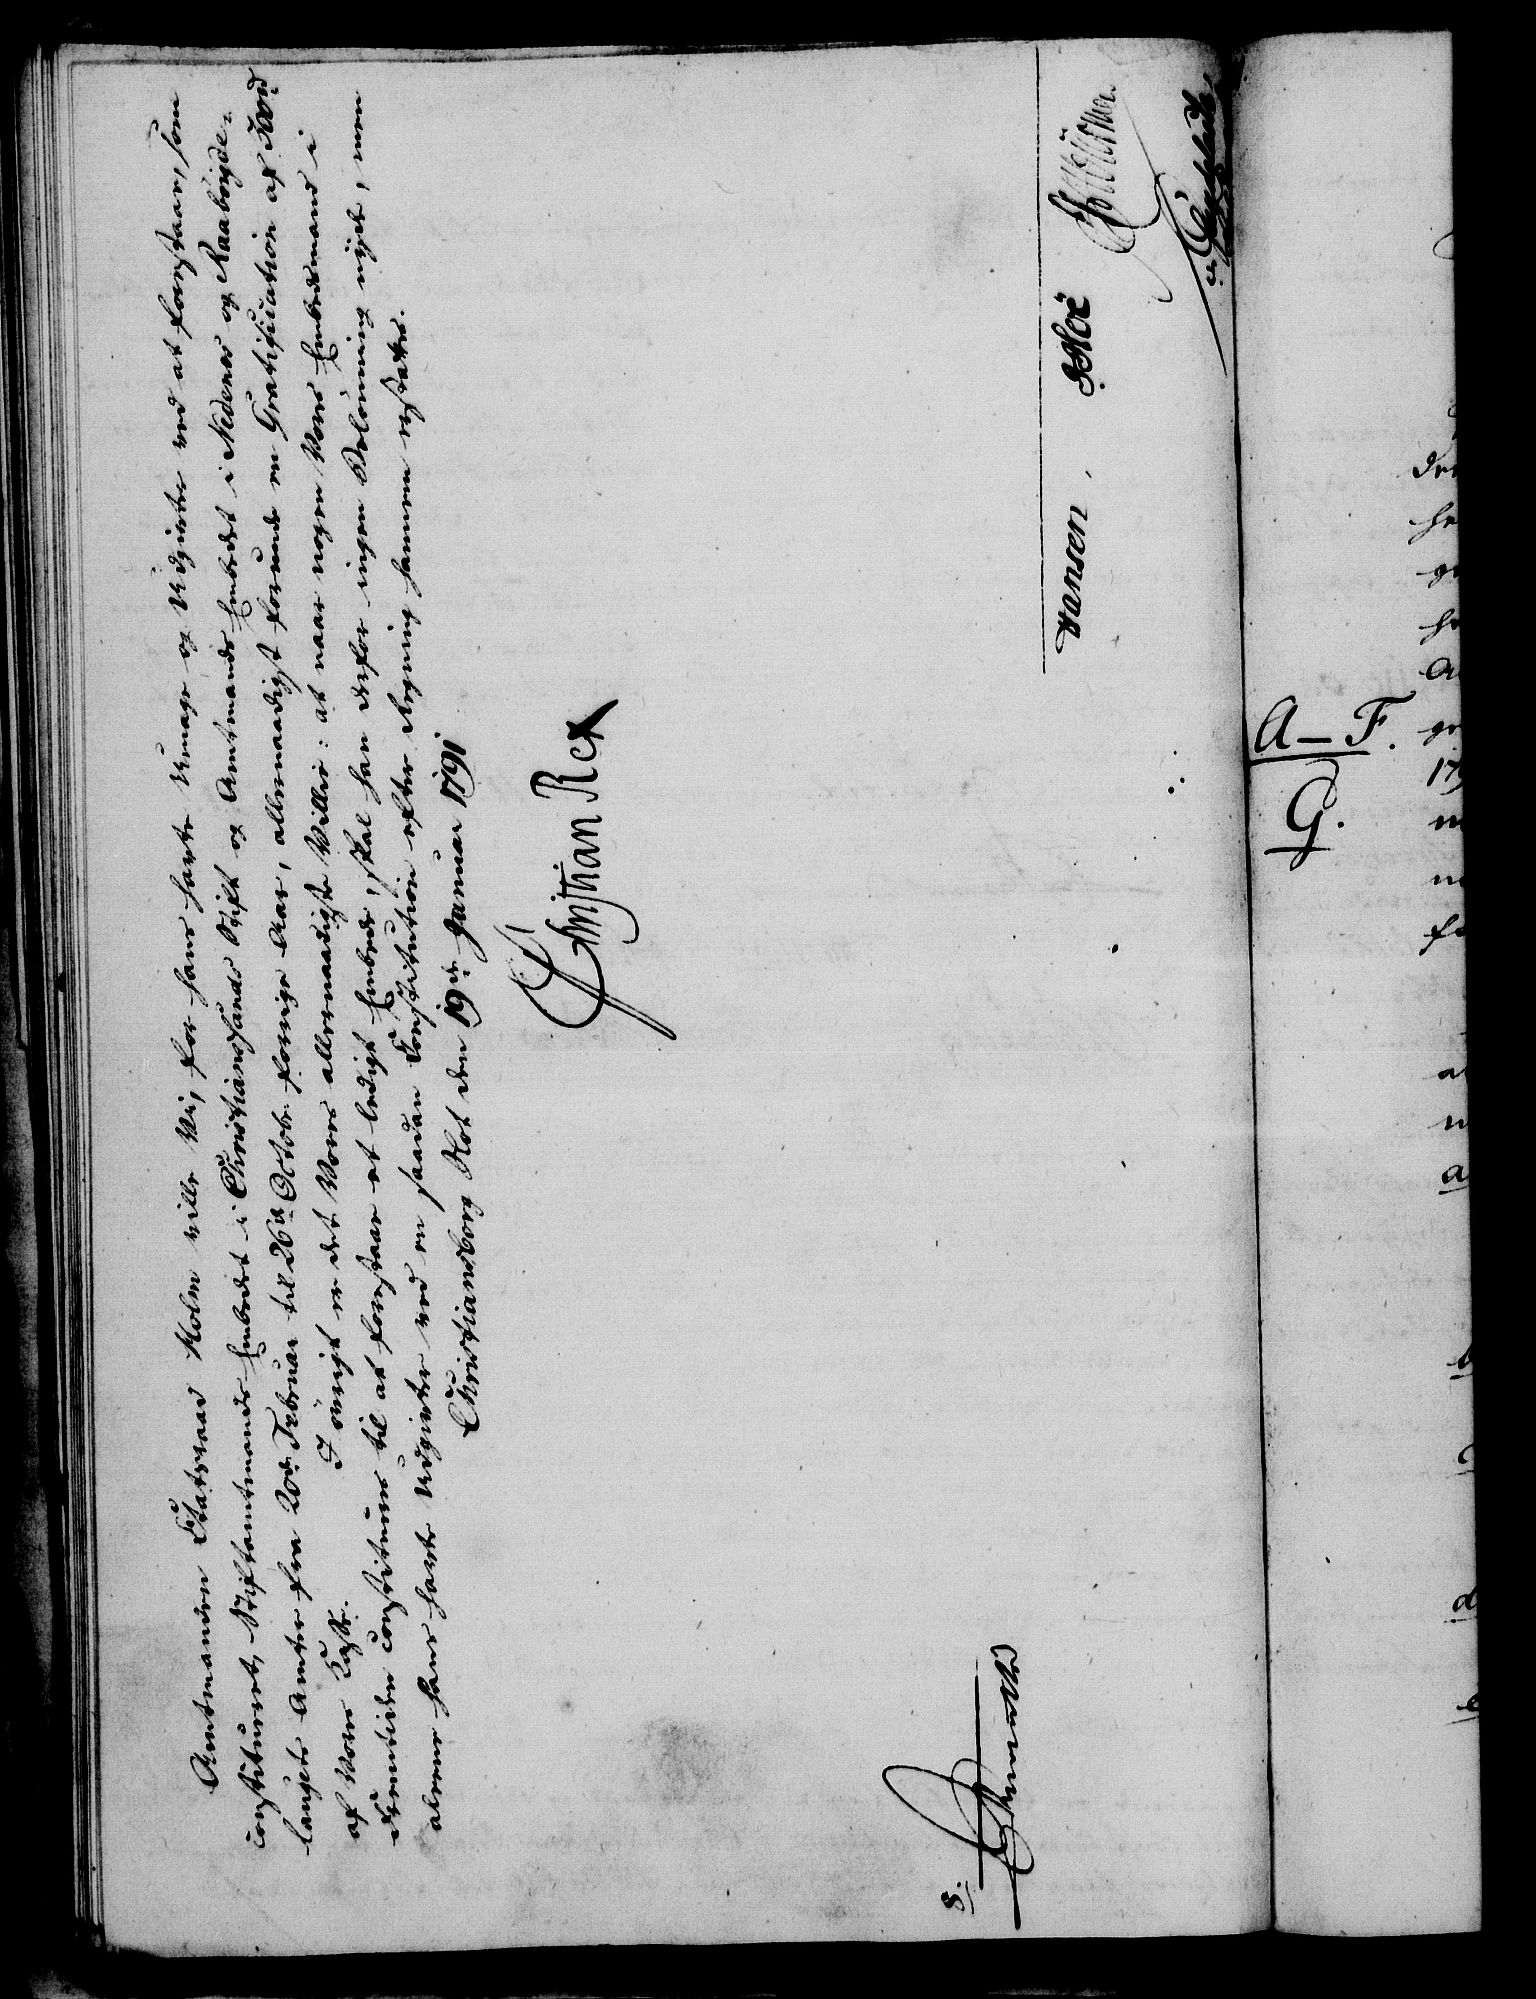 Amtmanden Etatsraad Holm ville Vi, for hans havte Umage og Udgivter ved at forestaae, som
constitueret, Stiftamtmands-Embedet i Christiansands Stift og Amtmands-Embedet i Nedenes og Raabøyde-
langets Amter fra 20de Februar til 26de Octobr forrige Aar, allernaadigst forunde en Gratification af
af Vores Casse.
I øvrigt er det Vores allernaadigste Villie: at naar nogen Vores Embedsmand i
Fremtiden constitueres til at forestaae et ledigt Embede, skal han derfor ingen Belønning nyde, men
alene hans havte Udgivter ved en saadan Constitution efter Regning hannem erstattes.
Christiansborg Slot den 19de Januar 1791
Christian Rex
vansen
Moe
8.
A-F.
G.